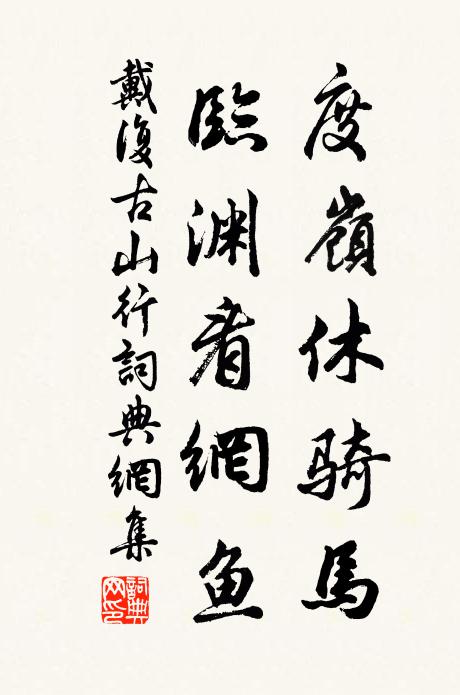 度嶺休騎馬
臨渊看網鱼
戴復古山行詞典網集
詞典网印